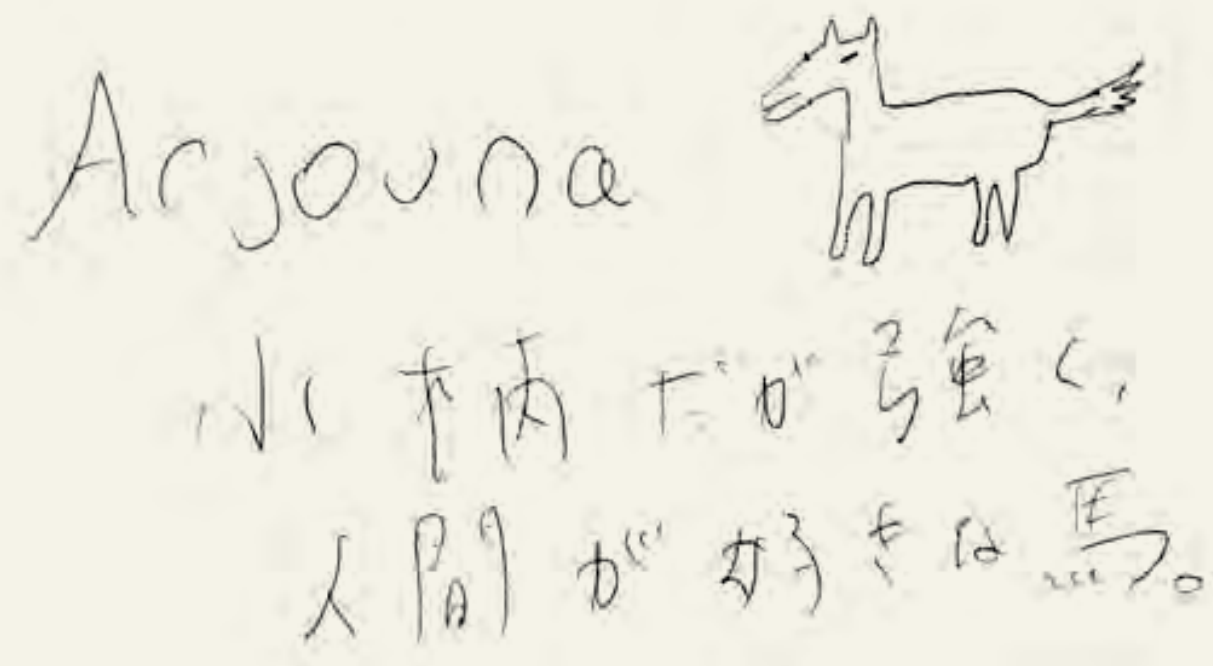 Arjouna
小柄だが強く,
人間が好きな馬。